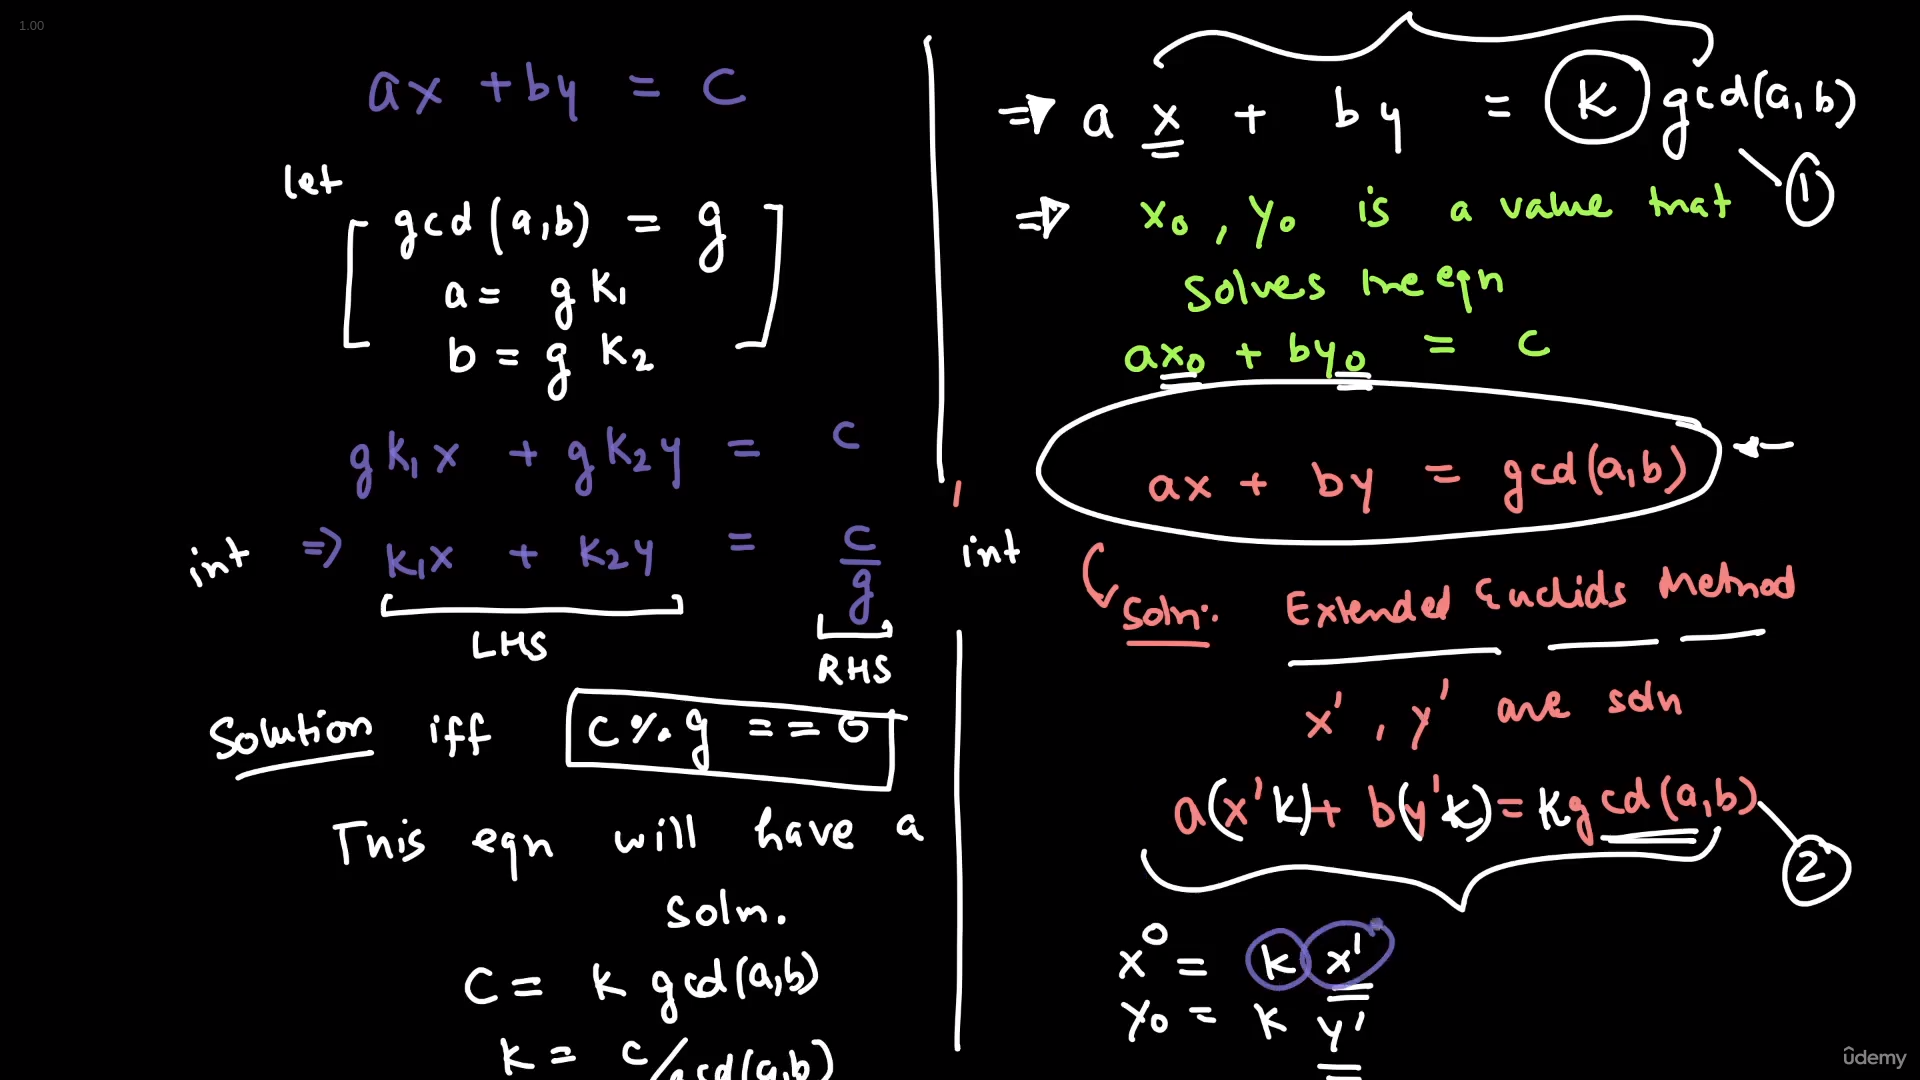 1.00
ax + by = c
let
gcd(a,b) = g
a = g k₁
b = g k₂
gk₁x + gk₂y = c
int ⇒ k₁x + k₂y = c/g int
LHS
RHS
Solution iff c % g == 0
This eqn will have a
soln.
C = k gcd(a,b)
k = c/gcd(a,b)
⇒ a x + b y = k gcd(a,b)
1
⇒ x₀, y₀ is a value that
solves the eqn
ax₀ + by₀ = c
ax + by = gcd(a,b) ←
soln: Extended Euclids Method
x', y' are soln
a(x'k) + b(y'k) = kgcd(a,b)
2
x⁰ = k x'
y₀ = k y'
ûdemy